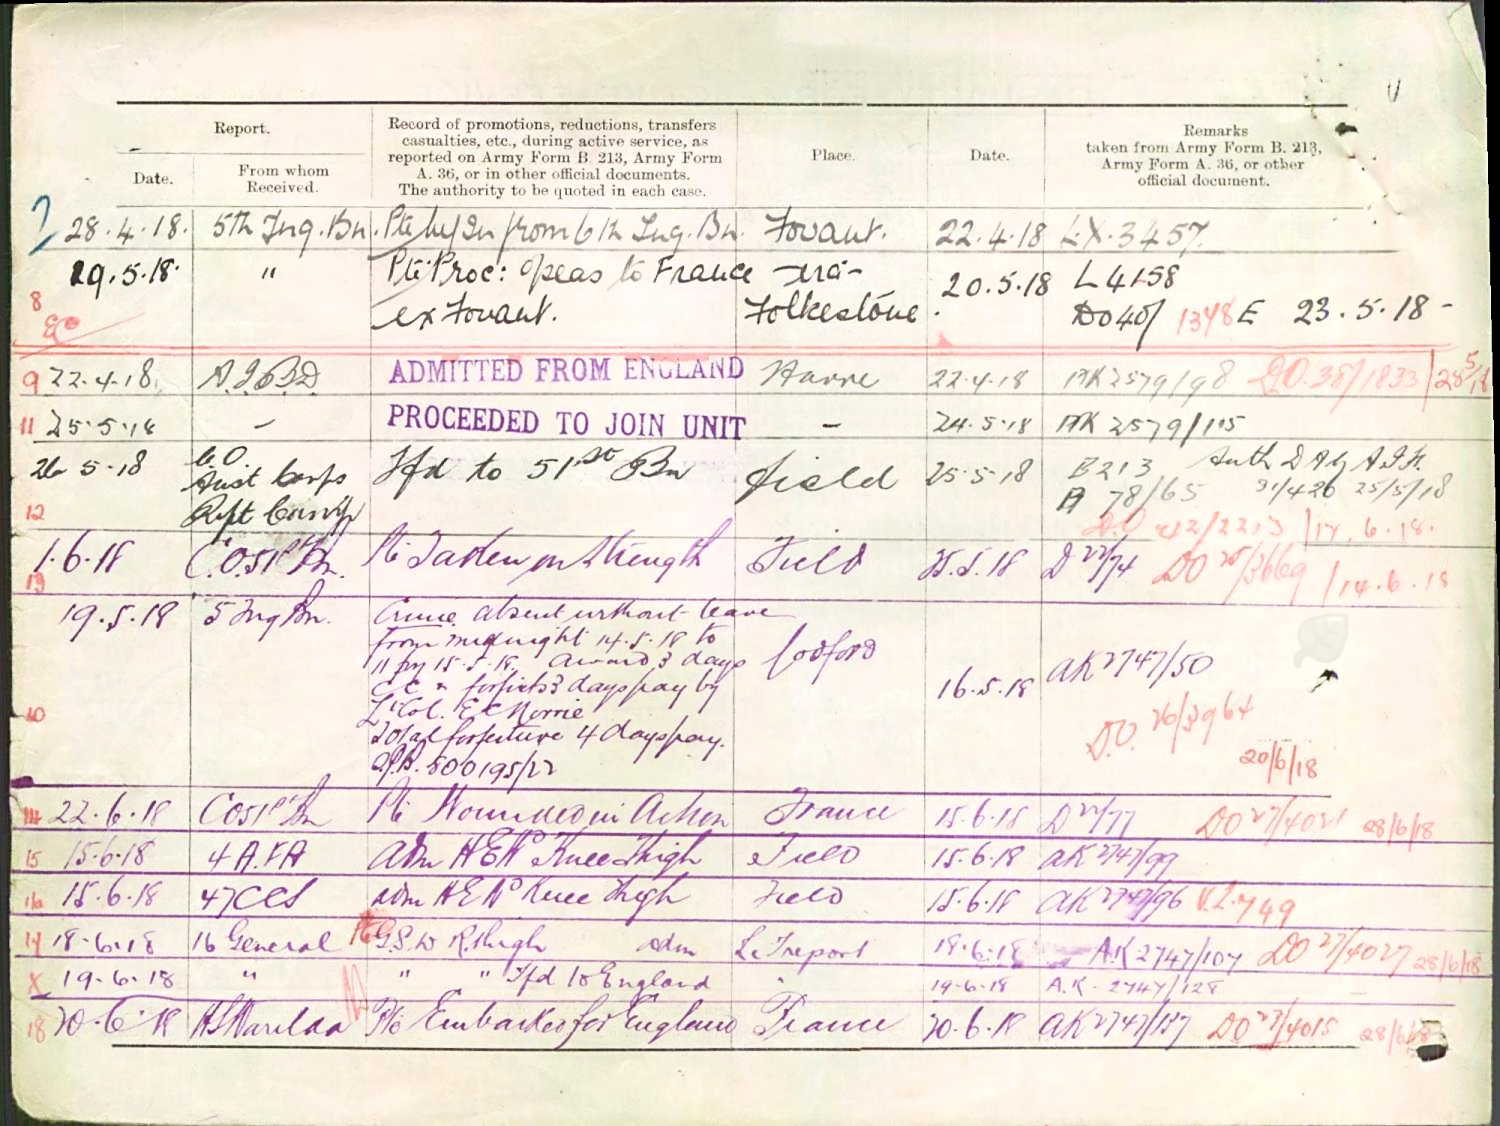 Report.
Date.
From whom
Received.
Record of promotions, reductions, transfers
casualties, etc., during active service, as
reported on Army Form B. 213, Army Form
A. 36, or in other official documents.
The authority to be quoted in each case.
Place.
Date.
Remarks
taken from Army Form B. 213,
Army Form A. 36, or other
official document.
28.4.18. 5th Trg. Bn. Pte from 6th Trg. Bn. Fovant. 22.4.18 LX.3457
29.5.18. " Pte Proc: O'seas to France -via- 20.5.18 L4158
ex Fovant. Folkestone. DO40/ 1348 E 23.5.18 -
8
9 22.4.18. A.I.B.D ADMITTED FROM ENGLAND Havre 22.4.18 AK2579/98 DO.38/1833 28/5/18
11 25.5.18 - PROCEEDED TO JOIN UNIT - 24.5.18 AK 2579/115
26 5.18 C.O. Tfd to 51st Bn field 25.5.18 B213 Auth DAG A.I.F.
Aust Corps A 78/65 31/426 25/5/18
12 Rft Camp D.O. 42/2213 /17.6.18.
1.6.18 C.O.51st Bn. Pte Taken on Strength Field 25.5.18 D 22/74 DO /14.6.18
13
19.5.18 5 Trg Bn. Crime absent without leave
from midnight 14.5.18 to
11 pm 15.5.18. award 3 days Codford
CC & forfeits 3 days pay by 16.5.18 AK2747/50
Lt Col. E C Norrie
10 Total forfeiture 4 days pay. D.O. 26/3964
500195/27 20/6/18
14 22.6.18 CO51st Bn Pte Wounded in Action France 15.6.18 D22/77 DO27/4021 28/6/18
15 15.6.18 4 A.F.A Adm H E W Knee Thigh Field 15.6.18 AK2747/99
15.6.18 47CCS adm H E W Knee Thigh Field 15.6.18 AK2747/96 V.2.749
17 18.6.18 16 General G.S.W R.Thigh Adm Le Treport 18.6.18 A.K 2747/107 DO27/4027 28/6/18
X 19.6.18 " " " Tfd to England " 19.6.18 A.K. 2747/128
18 20.6.18 Pte Embarked for England France 20.6.18 AK2747/137 DO27/4015 28/6/18